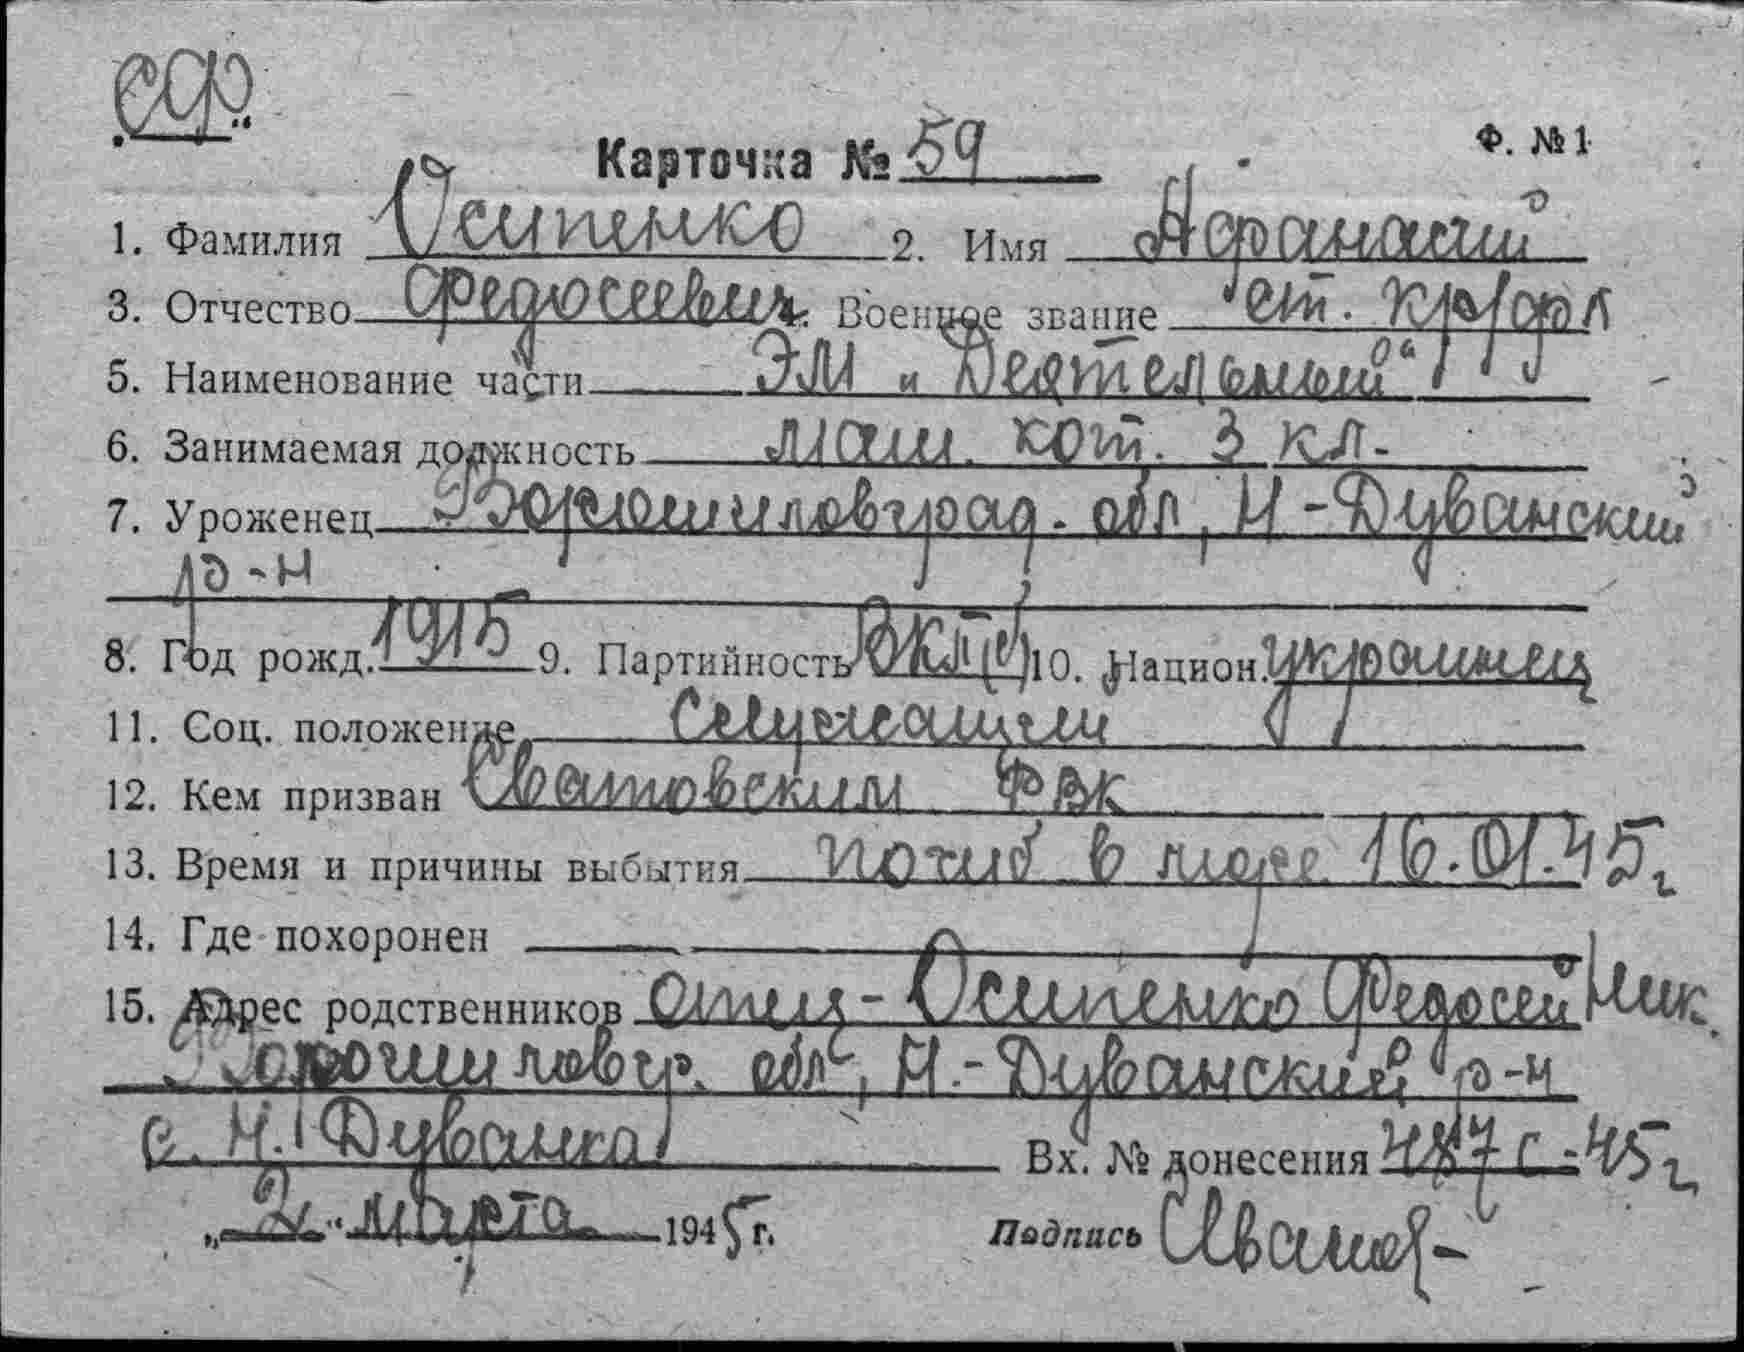 СФ
Карточка № 59 Ф. № 1
1. Фамилия Осипенко 2. Имя Афанасий
3. Отчество Федосеевич. Военное звание ст. кр/фл
5. Наименование части ЭМ „Деятельный“
6. Занимаемая должность маш. кот. 3 кл.
7. Уроженец Ворошиловград. обл, Н-Дуванский
р-н
8. Год рожд. 1915 9. Партийность ВКП(б) 10. Национ. украинец
11. Соц. положение Служащий
12. Кем призван Сватовским РВК
13. Время и причины выбытия погиб в море 16.01.45г
14. Где похоронен
15. Адрес родственников Отец - Осипенко Федосей Ник.
Ворошиловгр. обл, Н.-Дуванский р-н
с. Н. Дуванка Вх. № донесения 487 с-45г
„2“ марта 1945 г. Подпись Иванов